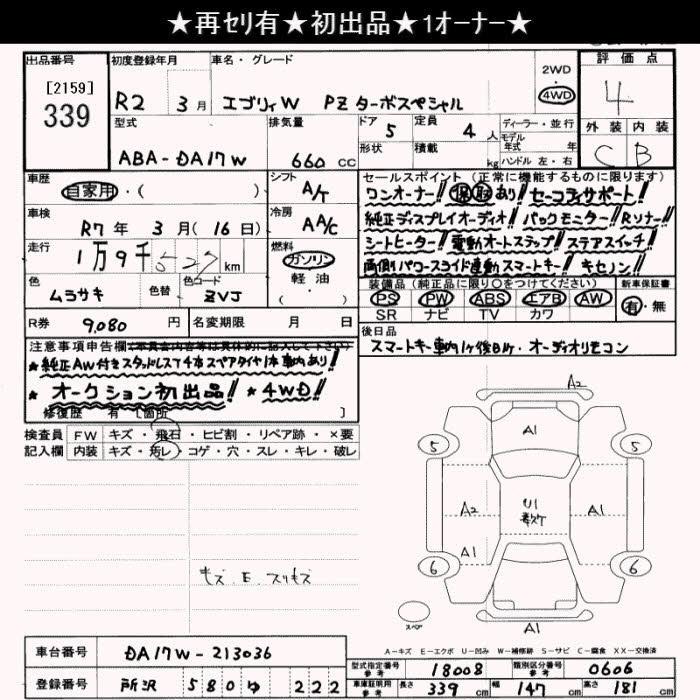 ★再セリ有★初出品★1オーナー★
出品番号 初度登録年月 車名・グレード 評価点
[2159]
339
R2 3月 エブリィW PZターボスペシャル 2WD 4WD 4
型式 排気量 ドア 定員 ディーラー・並行 外装 内装
ABA-DA17W 660cc 5 4人 モデル年式 年 C B
形状 積載 kg ハンドル 左・右
車歴 シフト セールスポイント(正常に機能するものに限ります)
自家用・( ) A/T ワンオーナー! 保取あり! セーフティサポート!
車検 冷房 純正ディスプレイオーディオ! バックモニター! Rソナー!
R7年3月(16日) AAC シートヒーター! 電動オートステップ! ステアスイッチ!
走行 燃料 両側パワースライド連動スマートキー! キセノン!
1万9千527km ガソリン
軽・油
( )
装備品(純正品に限り○をつけてください) 新車保証書
色 色替 色コード PS PW ABS エアB AW 有・無
ムラサキ ZVJ SR ナビ TV カワ
R券 9,080円 名変期限 月 日 後日品
スマートキー車内1ヶ後日1ヶ・オーディオリモコン
注意事項申告欄(車具合内容等は具体的に記入して下さい)
★純正AW付きスタッドレスT4本スペアタイヤ1本車内あり!
★オークション初出品! ★4WD!
修復歴 有〔箇所 〕
検査員 FW キズ・飛石・ヒビ割・リペア跡・×要
記入欄 内装 キズ・汚レ・コゲ・穴・スレ・キレ・破レ
キズ.E.スリキズ
A2
A1
5 5
A2 U1 A1
A1
6 6
スペア A1
A-キズ E-エクボ U-凹み W-補修跡 S-サビ C-腐食 XX-交換済
車台番号 DA17W-213036
型式指定番号 参考 18008 類別区分番号 参考 0606
登録番号 所沢 580 ゆ 222
車庫証明用 参考 長さ 339cm 幅 147cm 高さ 181cm